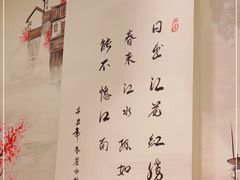 日出江花红胜
春来江水绿如
能不忆江南